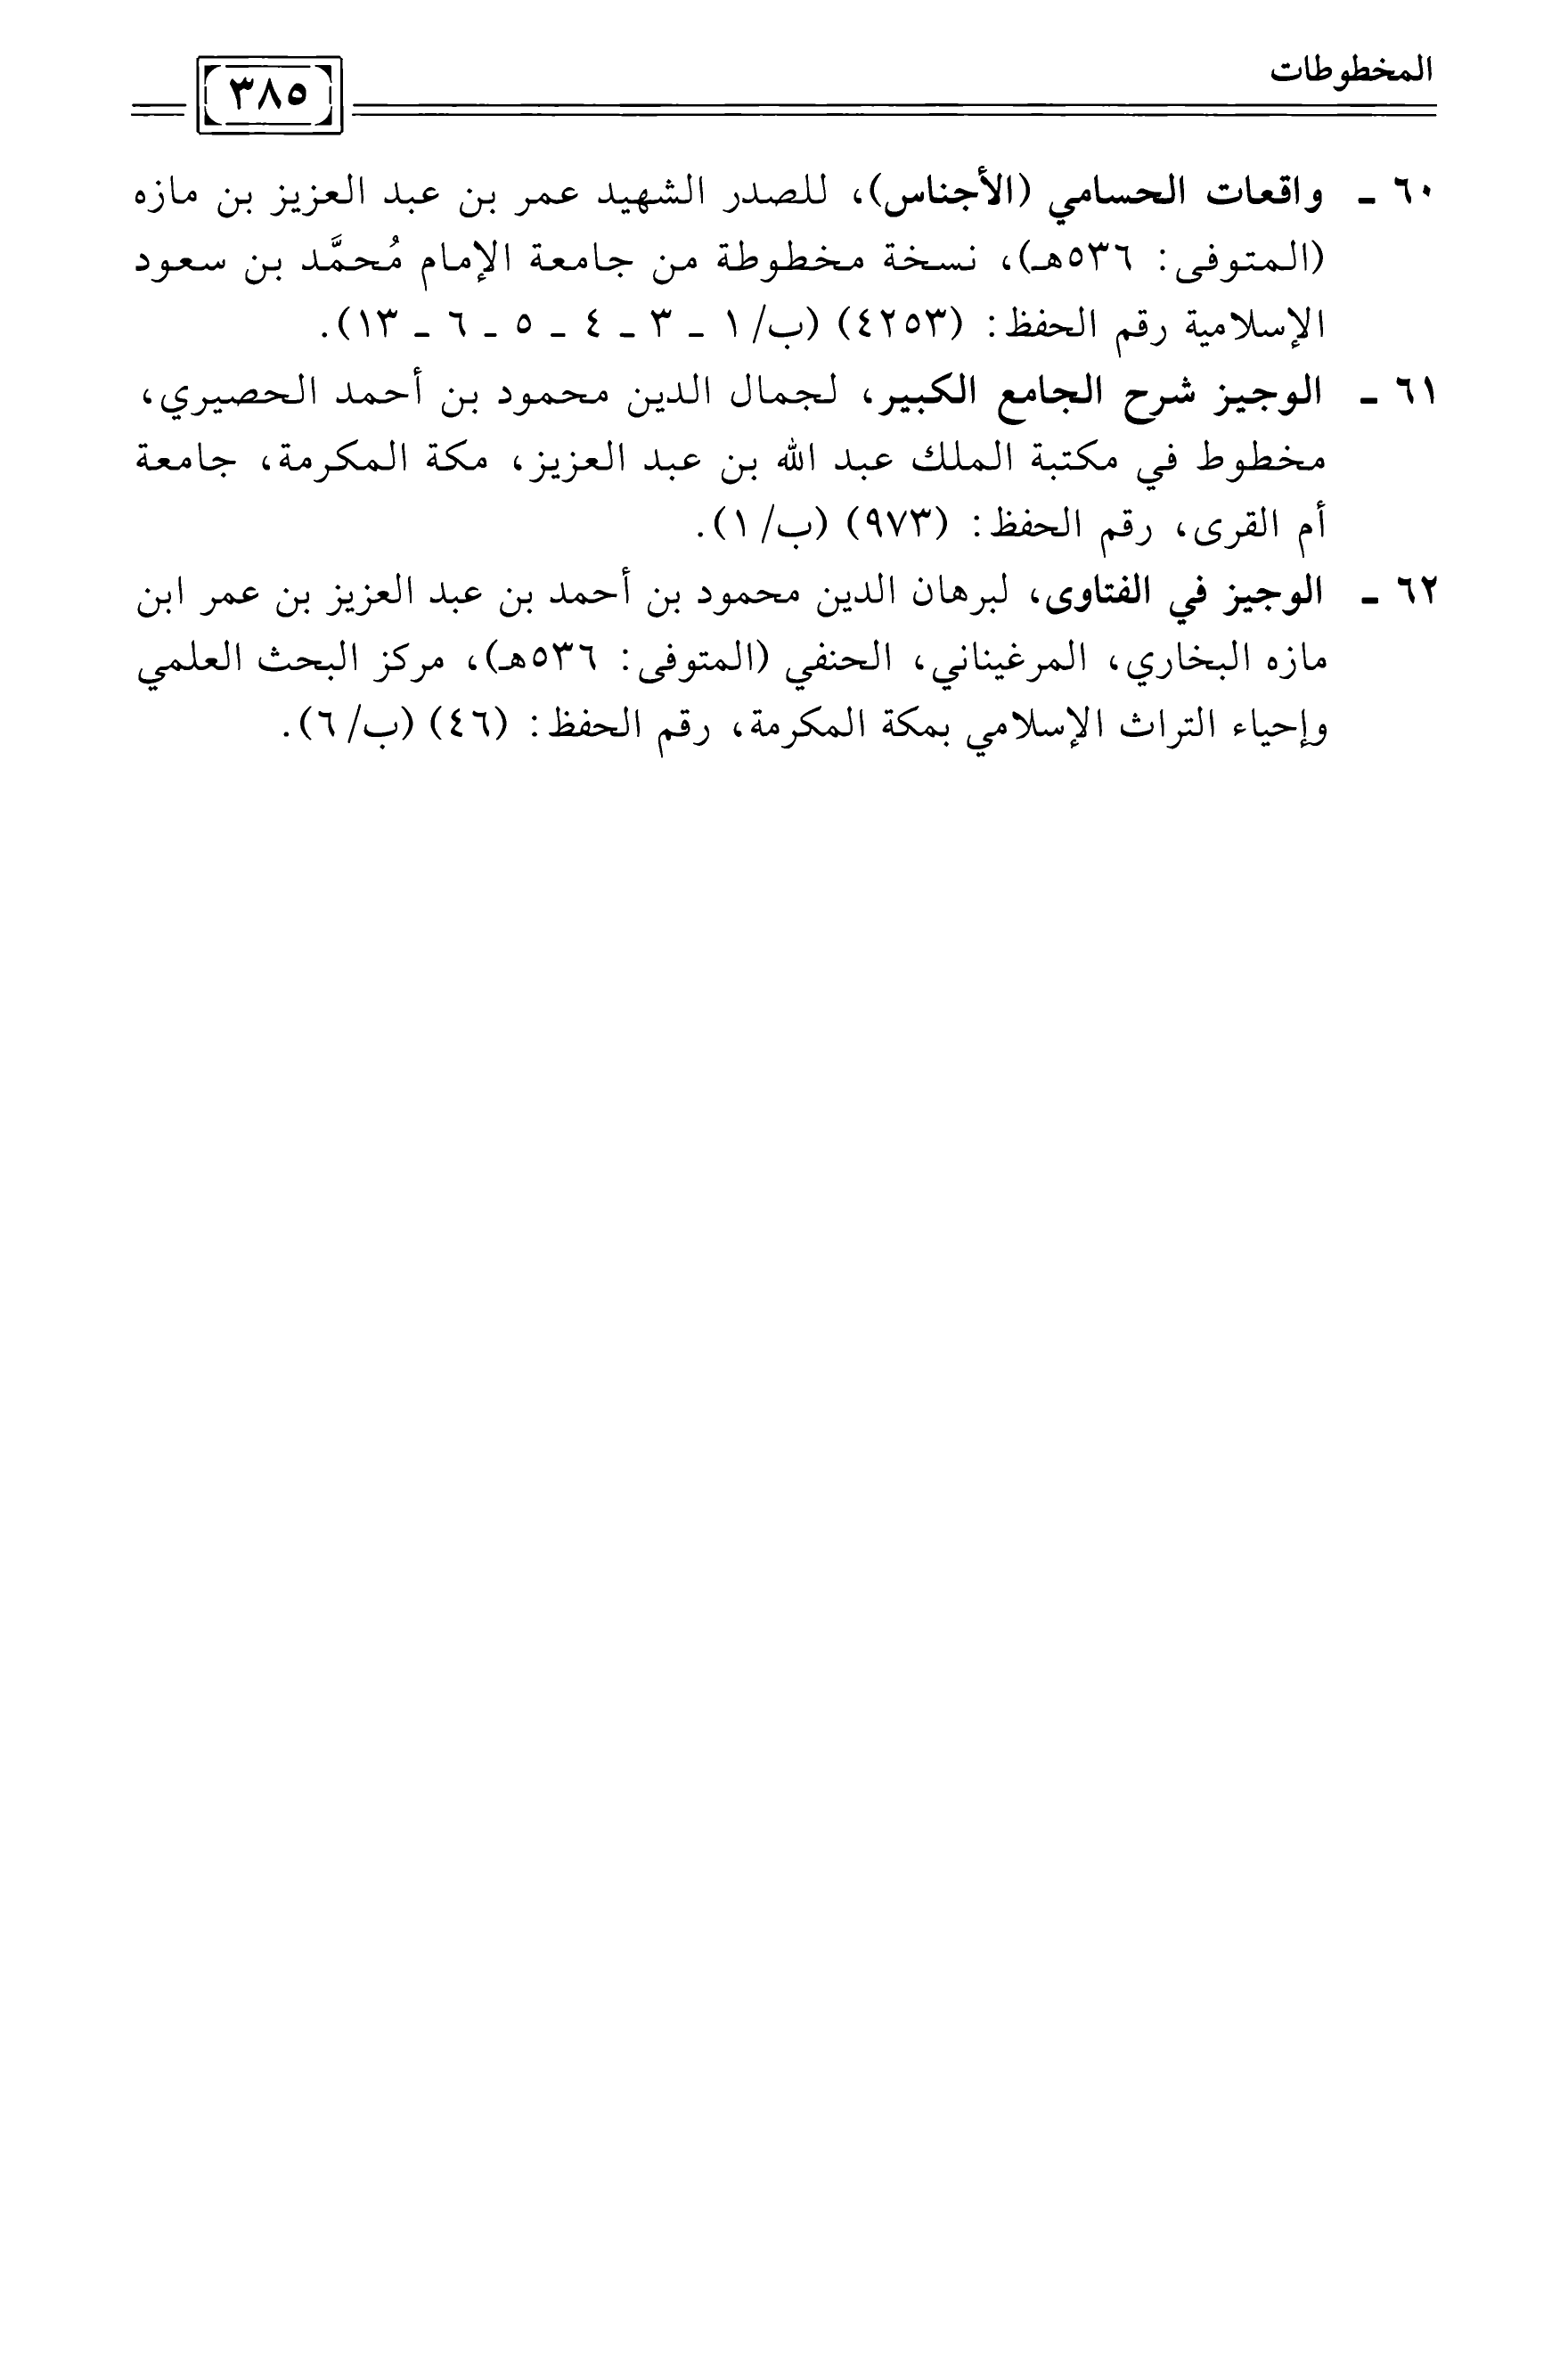 المخطوطات
٣٨٥
٦٠ ـ واقعات الحسامي (الأجناس)، للصدر الشهيد عمر بن عبد العزيز بن مازه
(المتوفى: ٥٣٦هـ)، نسخة مخطوطة من جامعة الإمام مُحمَّد بن سعود
الإسلامية رقم الحفظ: (٤٢٥٣) (ب/١ ـ ٣ ـ ٤ ـ ٥ ـ ٦ ـ ١٣).
٦١ ـ الوجيز شرح الجامع الكبير، لجمال الدين محمود بن أحمد الحصيري،
مخطوط في مكتبة الملك عبد الله بن عبد العزيز، مكة المكرمة، جامعة
أم القرى، رقم الحفظ: (٩٧٣) (ب/١).
٦٢ ـ الوجيز في الفتاوى، لبرهان الدين محمود بن أحمد بن عبد العزيز بن عمر ابن
مازه البخاري، المرغيناني، الحنفي (المتوفى: ٥٣٦هـ)، مركز البحث العلمي
وإحياء التراث الإسلامي بمكة المكرمة، رقم الحفظ: (٤٦) (ب/٦).